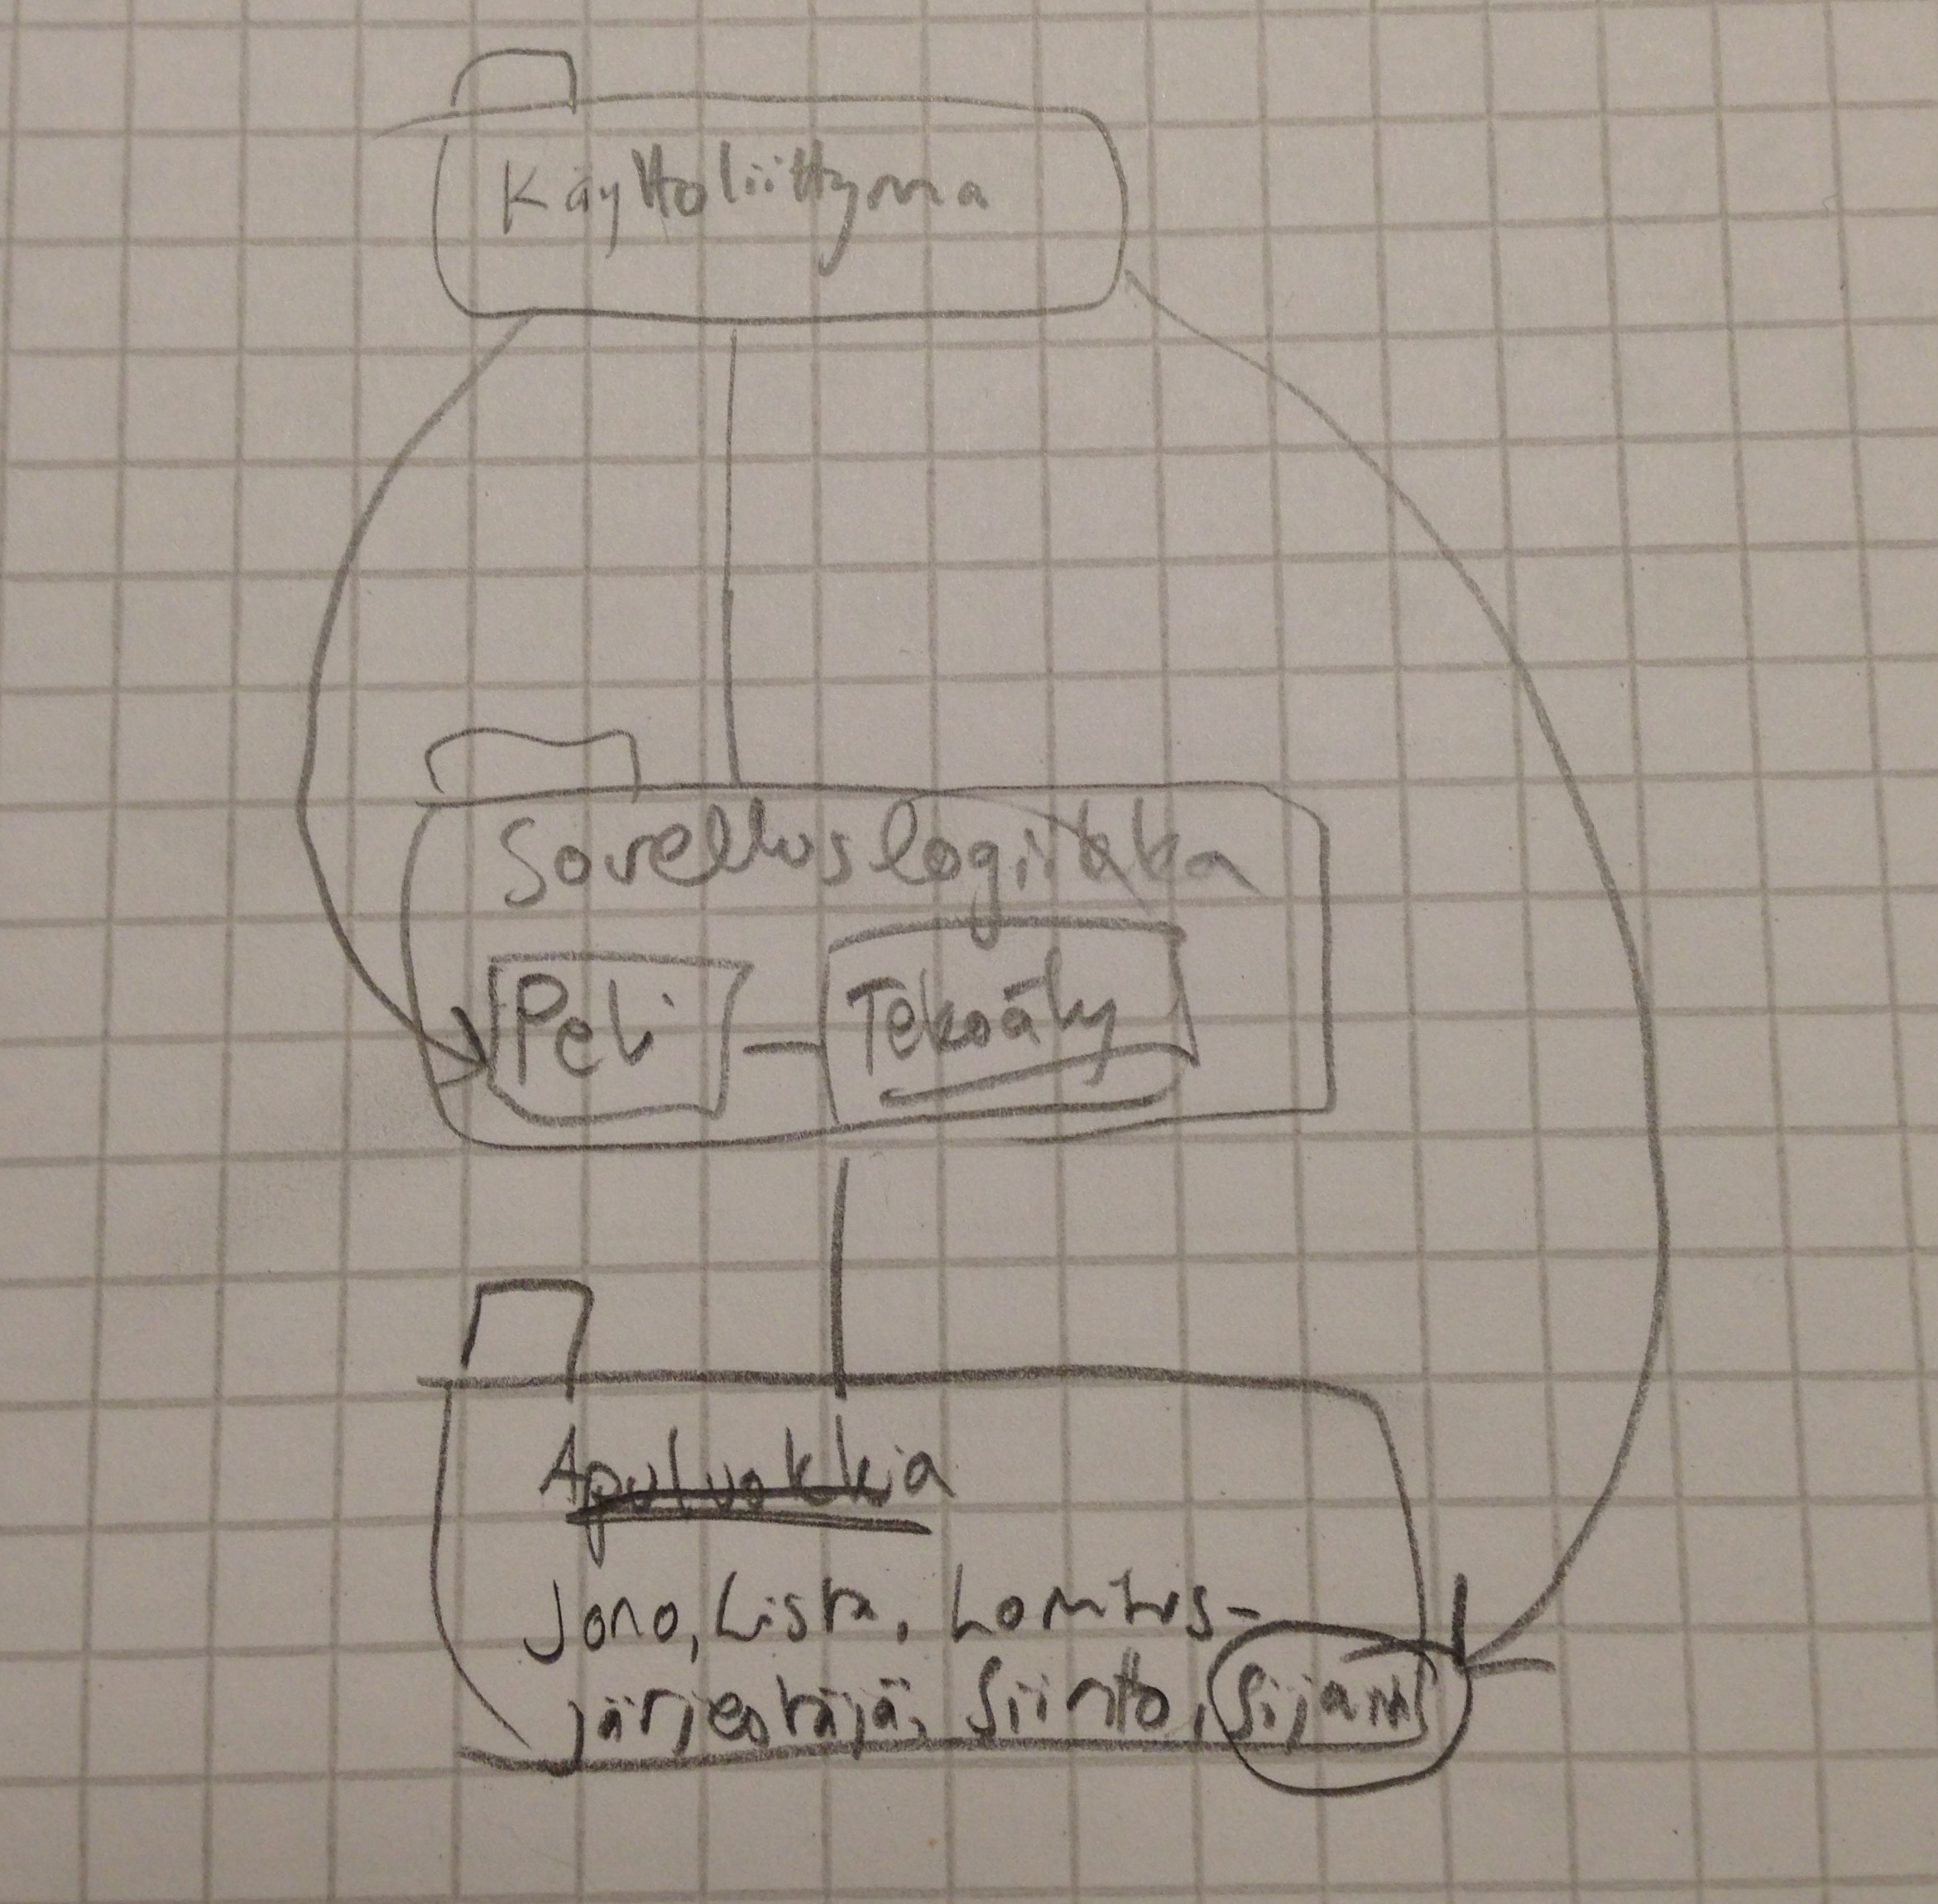 Käyttoliittyma
Sovelluslogiikka
Peli
Tekoäly
Apuluokkia
Jono, Lista, Lomitus-
järjestäjä, Siirto, Sijainti